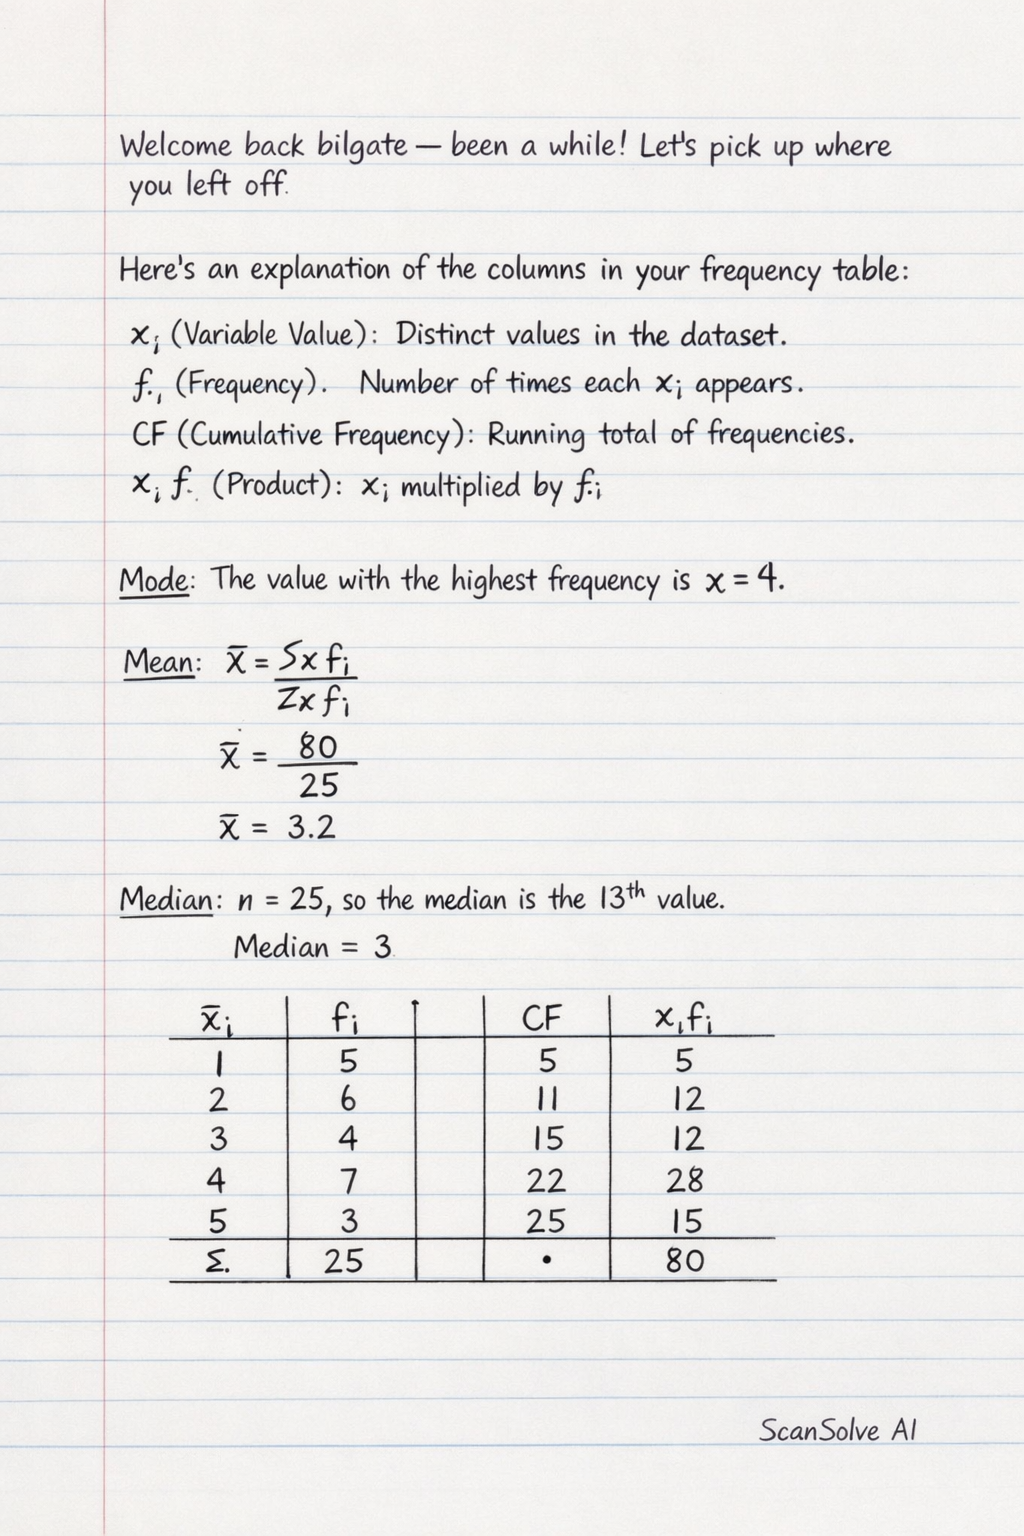 Welcome back bilgate — been a while! Let's pick up where
you left off.
Here's an explanation of the columns in your frequency table:
xᵢ (Variable Value): Distinct values in the dataset.
f.ᵢ (Frequency). Number of times each xᵢ appears.
CF (Cumulative Frequency): Running total of frequencies.
xᵢ f. (Product): xᵢ multiplied by f.ᵢ
Mode: The value with the highest frequency is x = 4.
Mean: x̄ = Sx fᵢ
Zx fᵢ
x̄ = 80
25
x̄ = 3.2
Median: n = 25, so the median is the 13th value.
Median = 3
x̄ᵢ fᵢ CF xᵢfᵢ
1 5 5 5
2 6 11 12
3 4 15 12
4 7 22 28
5 3 25 15
Σ. 25 • 80
ScanSolve AI